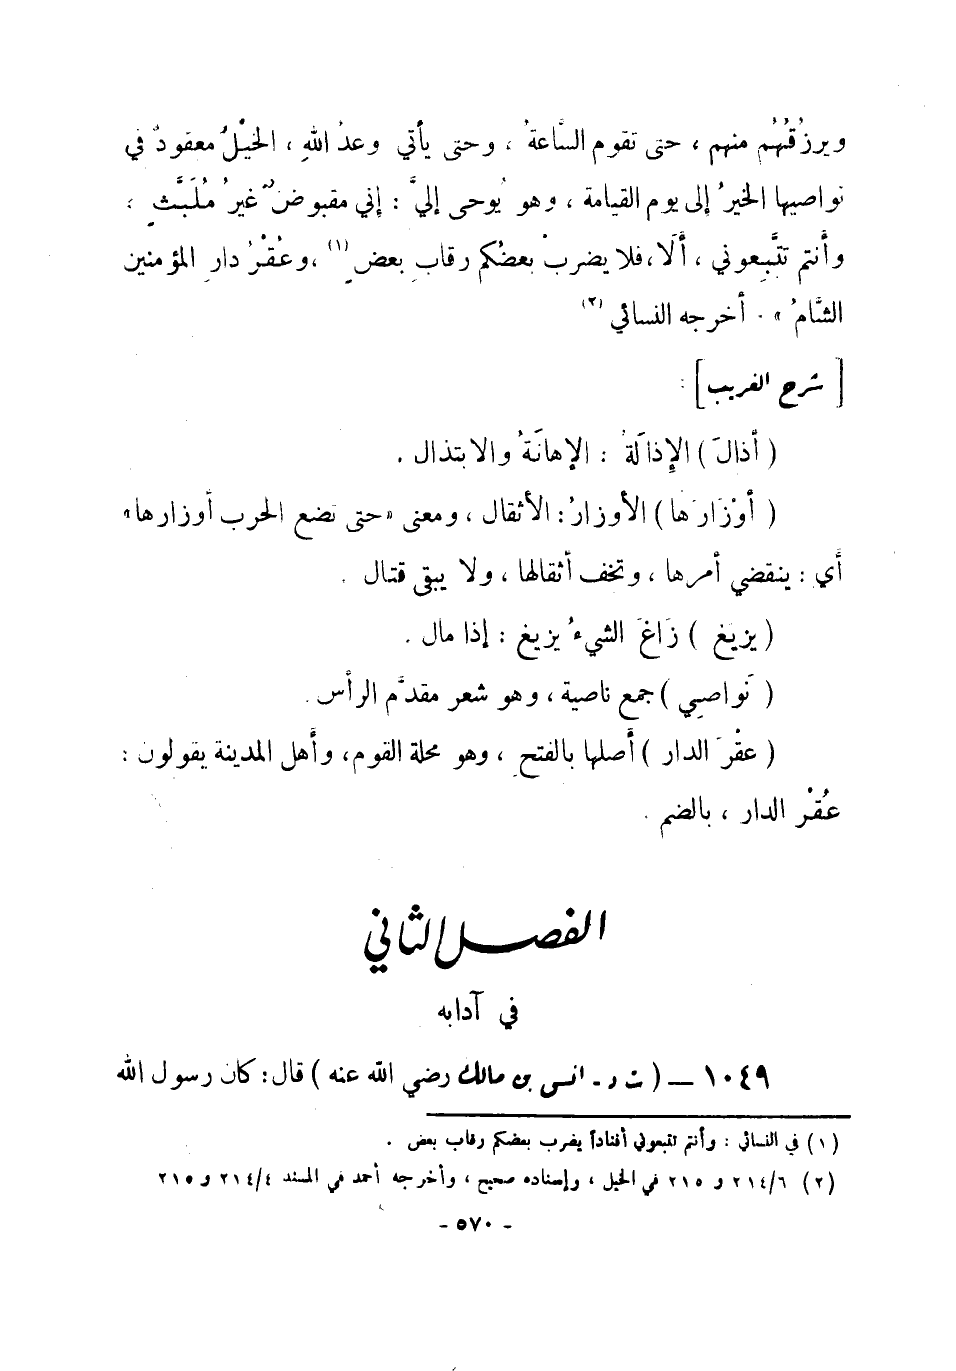 ويرزُقُهُم منهم ، حتى تقوم السَّاعةُ ، وحتى يأتي وعدُ اللهِ ، الخيْلُ معقودٌ في
نواصيها الخيرُ إلى يوم القيامة ، وهو يُوحى إليَّ : إني مقبوضٌ غيرُ مُلَبَّثٍ ،
وأنتم تتَّبِعوني ، ألَا ، فلا يضربْ بعضُكم رقابِ بعضٍ (١) ، وعُقْرُ دارِ المؤمنين
الشَّامُ » . أخرجه النسائي (٢)
[ شرح الغريب ] :
( أذالَ ) الإِذالَةُ : الإهانَةُ والابتذال .
( أوْزارَها ) الأوزارُ : الأثقال ، ومعنى « حتى تضع الحرب أوزارها »
أي : ينقضي أمرها ، وتخف أثقالها ، ولا يبقى قتال .
( يزيغ ) زَاغَ الشيءُ يزيغ : إذا مال .
( نَواصِي ) جمع ناصية ، وهو شعر مقدَّم الرأس .
( عقْرَ الدار ) أصلها بالفتح ، وهو محلة القوم ، وأهل المدينة يقولون :
عُقْر الدار ، بالضم .
الفصل الثاني
في آدابه
١٠٤٩ – ( ت د - أنس بن مالك رضي الله عنه ) قال : كان رسول الله
(١) في النسائي : وأنتم تتبعوني أفناداً يضرب بعضكم رقاب بعض .
(٢) ٢١٤/٦ و ٢١٥ في الخيل ، وإسناده صحيح ، وأخرجه أحمد في المسند ٢١٤/٤ و ٢١٥
- ٥٧٠ -